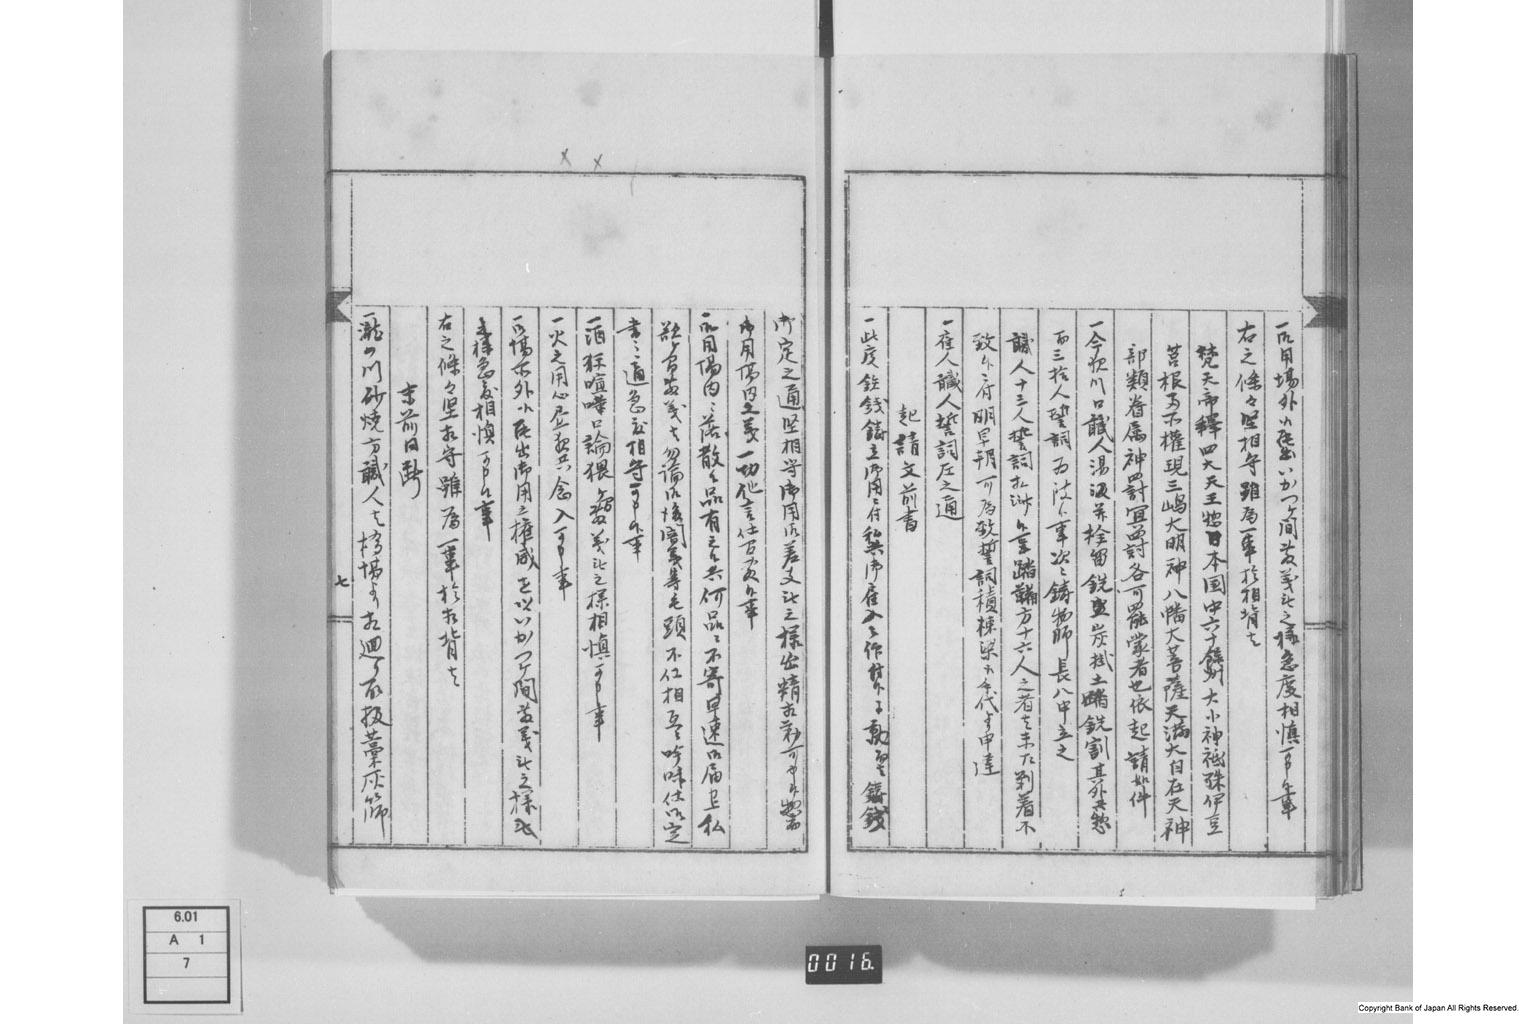 一御用場外小屋いかつヶ間敷義無之様急度相慎可申候事
右之條々堅相守雖為一事於相背者
梵天帝釋四大天王惣日本国中六十餘州大小神祇殊伊豆
筥根両所權現三嶋大明神八幡大菩薩天満大自在天神
部類眷属神罰冥罰各可罷蒙者也依起請如件
一今般川口職人湯汲并栓留銑盛炭掛土踏銑割其外共惣
而三拾人誓詞為致候事次ニ鋳物師長八申立之
職人十三人誓詞相済候事踏鞴方十六人之者者未タ到着不
致候ニ付明早朝可為致誓詞積棟梁
一雇人職人誓詞左之通
起請文前書
一此度銑銭鋳立御用ニ付私共御雇入ニ
御定之通堅相守御用御差支無之様出精相勤可申候惣而
御用場内之義一切他言仕間敷候事
一御用場内ニ落散候品有之候共何品ニ不寄早速御届申上私
欲ヶ間敷義者勿論
書之通急度相守可申候事
一酒狂喧嘩口論猥ヶ間敷義無之様相慎可申候事
一火之用心昼夜共念入可申事
一御場所外江罷出御用之権威を以いかつヶ間敷義無之様
急度相慎可申候事
右之條々堅相守雖為一事於相背者
末前日断
一瀧の川砂焼方職人者
七
6.01
A 1
7
0016.
Copyright Bank of Japan All Rights Reserved.